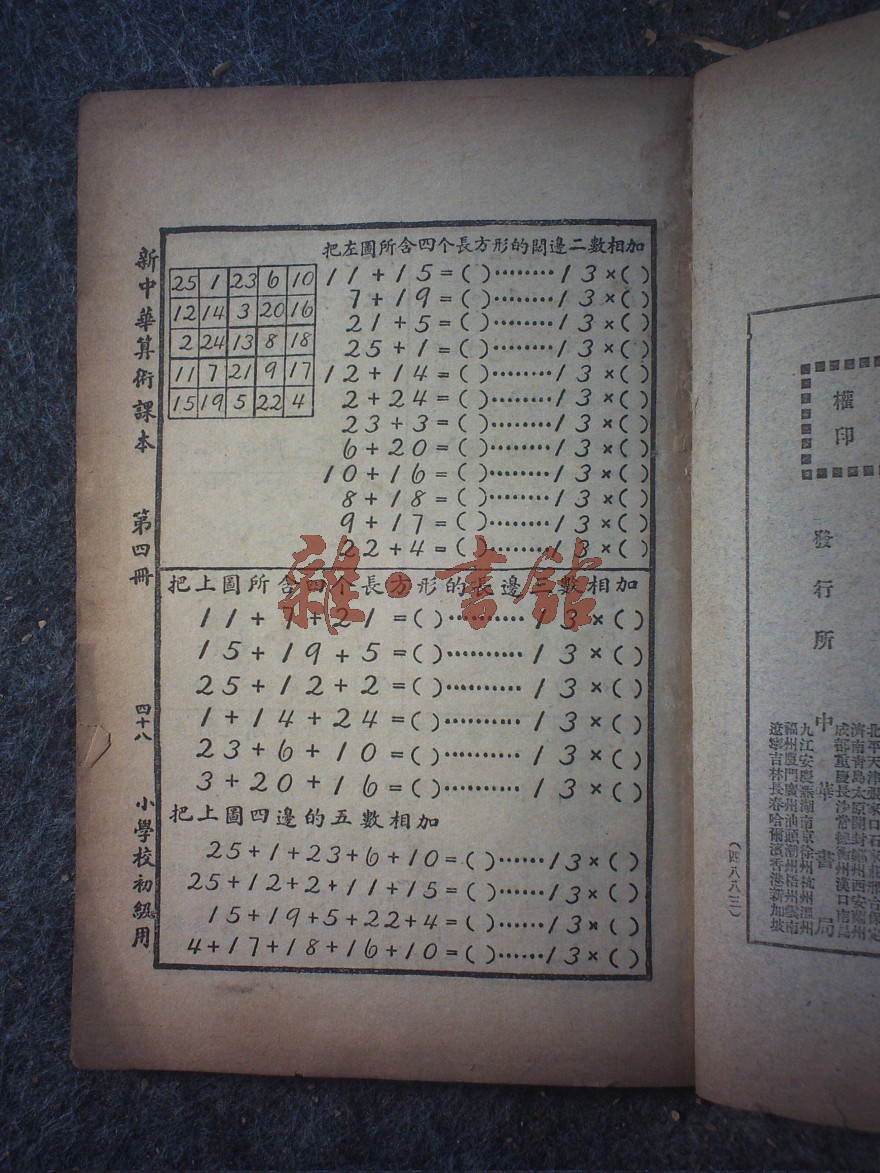 新中華算術課本 第四冊 四十八 小學校初級用
把左圖所含四个長方形的闊邊二數相加
25 1 23 6 10
12 14 3 20 16
2 24 13 8 18
11 7 21 9 17
15 19 5 22 4
11+15=( )………13×( )
7+19=( )………13×( )
21+5=( )………13×( )
25+1=( )………13×( )
12+14=( )………13×( )
2+24=( )………13×( )
23+3=( )………13×( )
6+20=( )………13×( )
10+16=( )………13×( )
8+18=( )………13×( )
9+17=( )………13×( )
22+4=( )………13×( )
把上圖所含四个長方形的長邊三數相加
11+7+21=( )…………13×( )
15+19+5=( )…………13×( )
25+12+2=( )…………13×( )
1+14+24=( )…………13×( )
23+6+10=( )…………13×( )
3+20+16=( )…………13×( )
把上圖四邊的五數相加
25+1+23+6+10=( )……13×( )
25+12+2+11+15=( )……13×( )
15+19+5+22+4=( )……13×( )
4+17+18+16+10=( )……13×( )
雜·書館
權印
發行所 中華書局
北平天津張家口石家莊邢台保定
濟南青島太原開封鄭州西安蘭州
成都重慶長沙常德衡州漢口南昌
九江安慶蕪湖南京徐州杭州溫州
福州廈門廣州汕頭潮州梧州雲南
遼寧吉林長春哈爾濱香港新加坡
(四八八三)